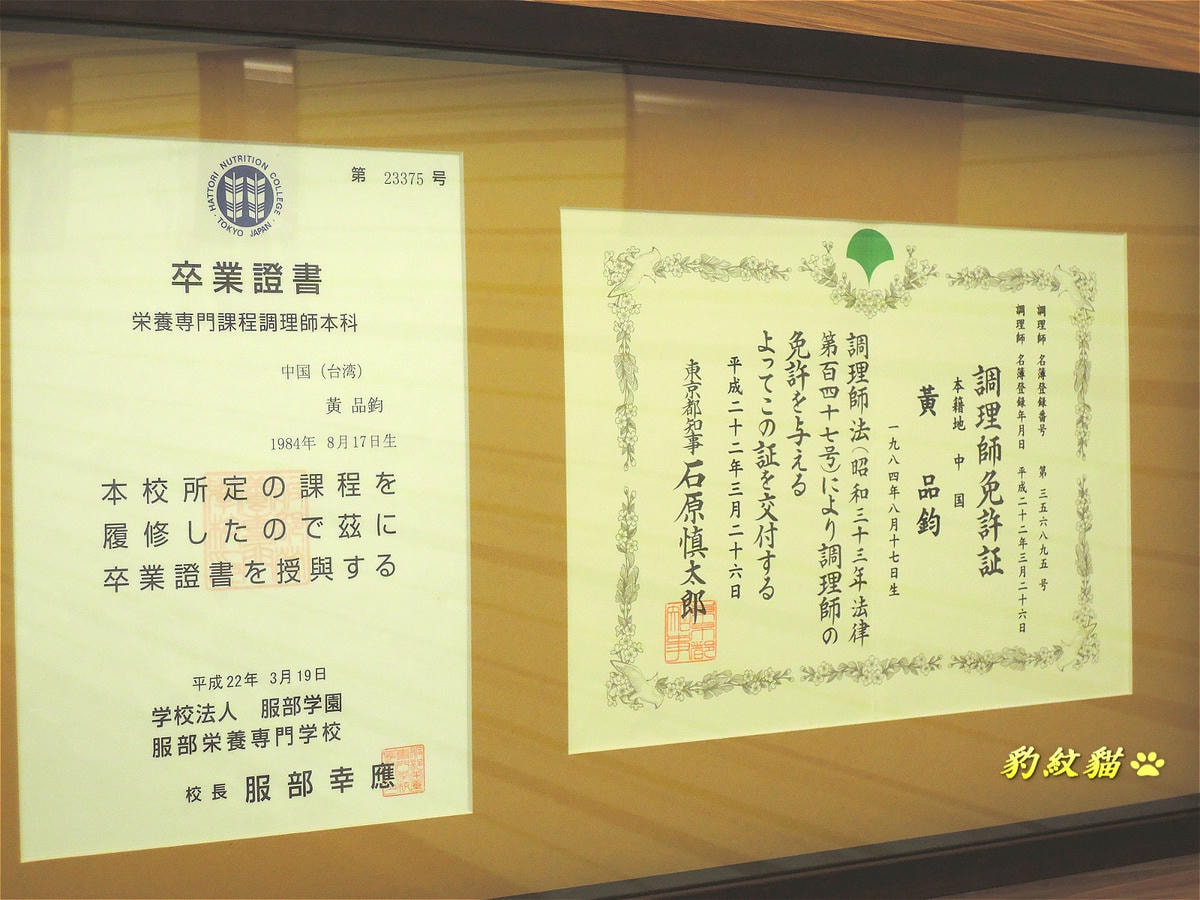 HATTORI NUTRITION COLLEGE
TOKYO JAPAN
第 23375 号
卒業證書
栄養専門課程調理師本科
中国（台湾）
黃 品鈞
1984年 8月17日生
本校所定の課程を
履修したので茲に
卒業證書を授與する
平成22年 3月19日
学校法人 服部学園
服部栄養専門学校
校長 服部幸應
調理師 名簿登録番号 第 三五六八九五 号
調理師 名簿登録年月日 平成二十二年三月二十六日
調理師免許証
本籍地 中国
黃 品鈞
一九八四年八月十七日生
調理師法（昭和三十三年法律
第百四十七号）により調理師の
免許を与える
よってこの証を交付する
平成二十二年三月二十六日
東京都知事 石原慎太郎
豹紋貓